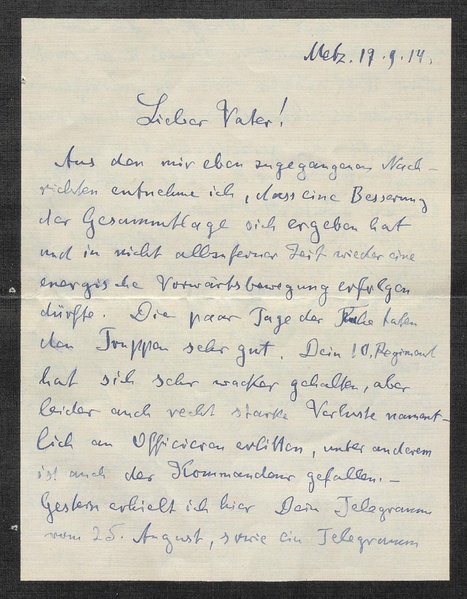 Metz. 19.9.14.
Lieber Vater!
Aus den mir eben zugegangenen Nach-
richten entnehme ich, dass eine Besserung
der Gesammtlage sich ergeben hat
und in nicht allzuferner Zeit wieder eine
energische Vorwärtsbewegung erfolgen
dürfte. Die paar Tage der Ruhe taten
den Truppen sehr gut. Dein 10. Regiment
hat sich sehr wacker gehalten, aber
leider auch recht starke Verluste nament-
lich an Officieren erlitten, unter anderem
ist auch der Kommandeur gefallen. –
Gestern erhielt ich hier Dein Telegramm
vom 25. August, sowie ein Telegramm